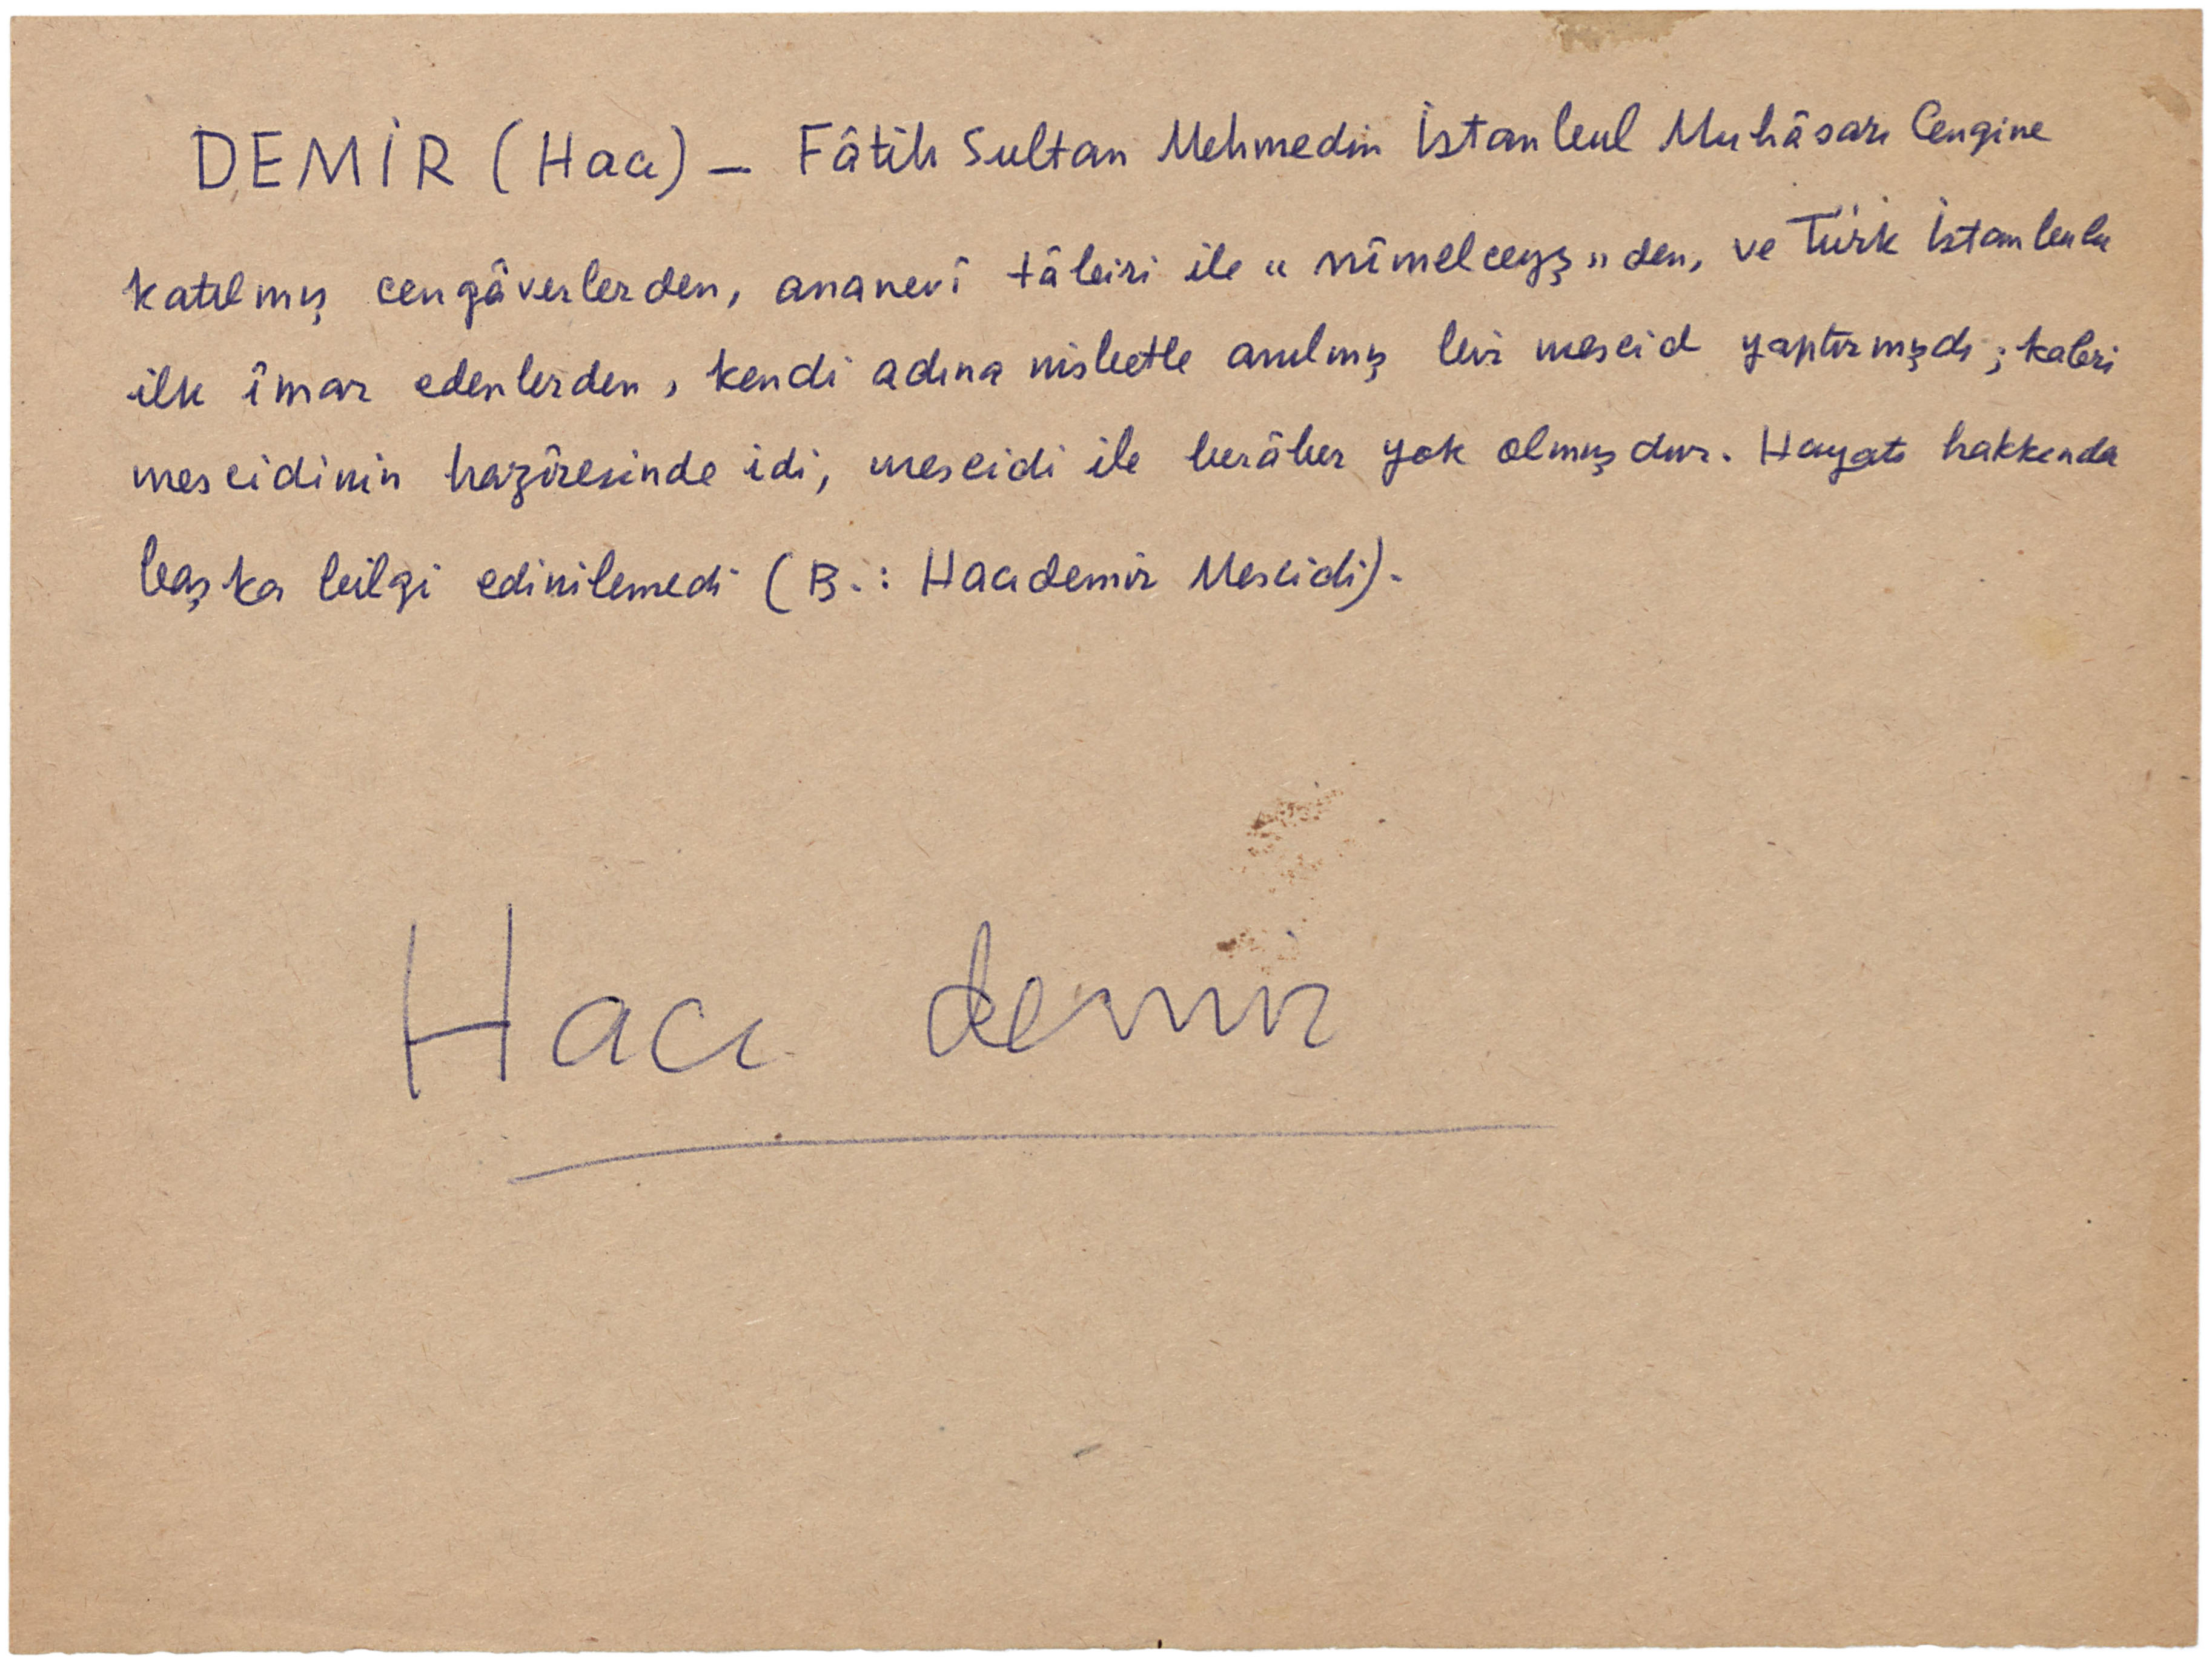 DEMİR (Hacı) — Fâtih Sultan Mehmedin İstanbul Muhâsara Cengine
katılmış cengâverlerden, ananevî tâbiri ile "nîmelceyş"den, ve Türk İstanbulu
ilk îmar edenlerden, kendi adına nisbetle anılmış bir mescid yaptırmışdı; kabri
mescidinin hazîresinde idi, mescidi ile berâber yok olmuşdur. Hayatı hakkında
başka bilgi edinilemedi (B.: Hacıdemir Mescidi).
Hacı demir